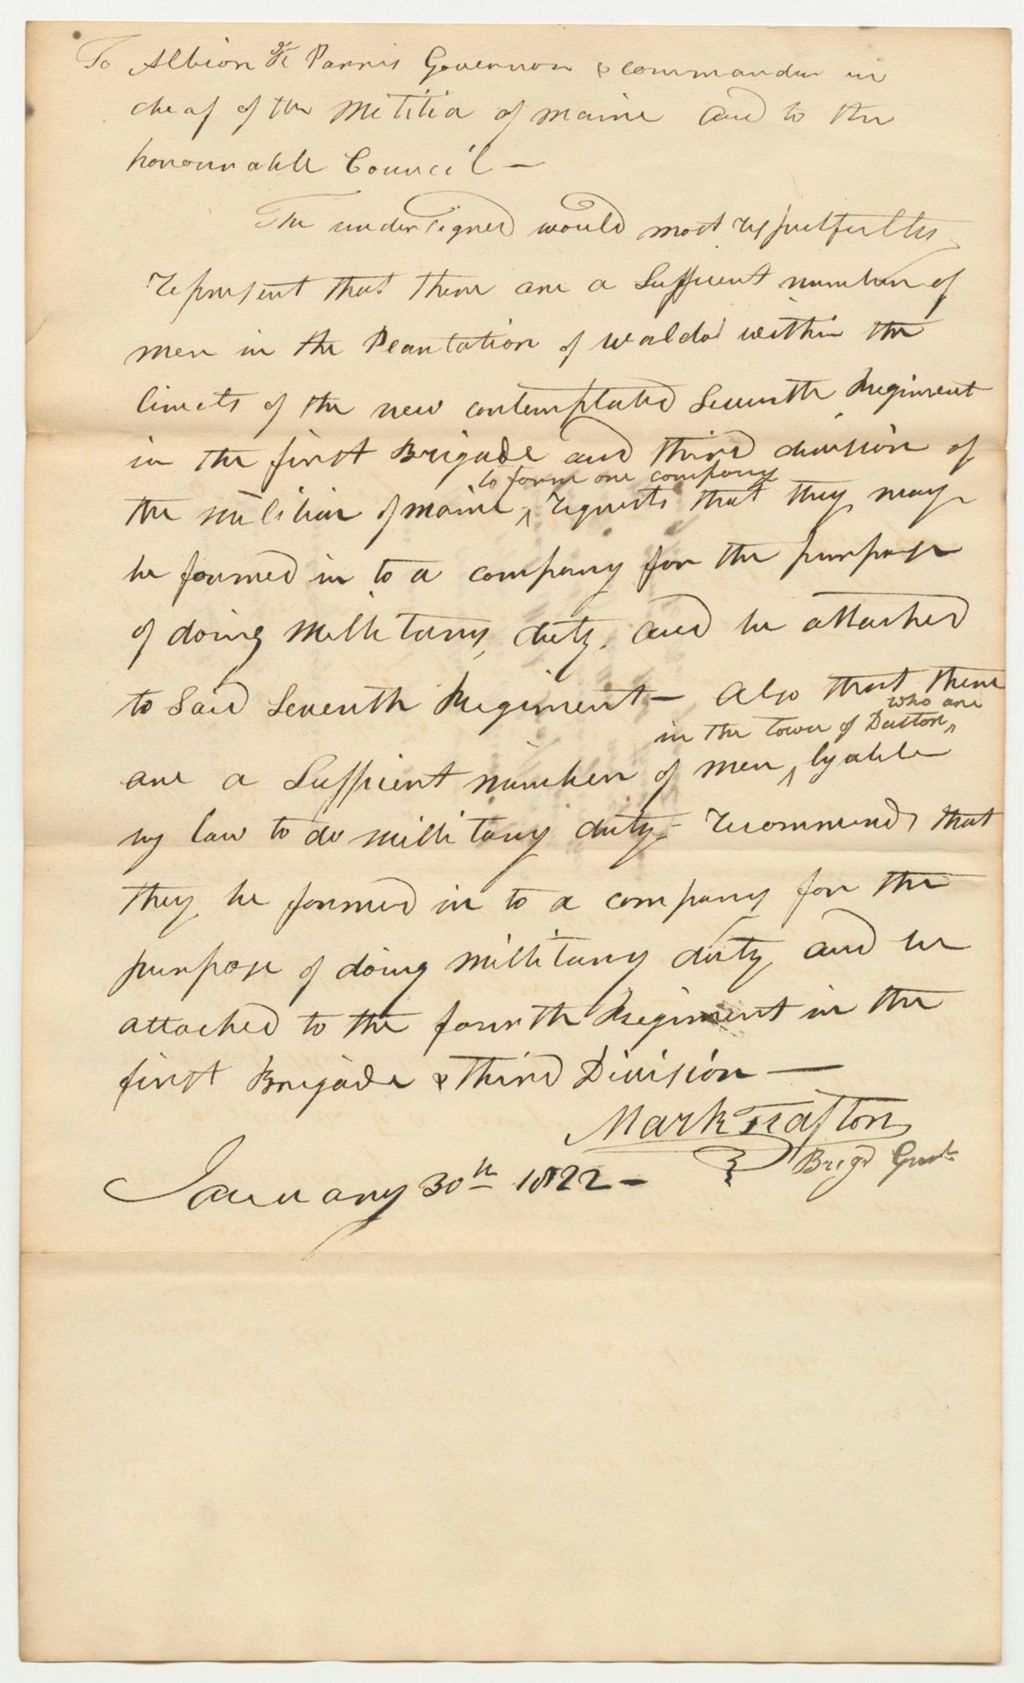 To Albion K Parris Governor & commander in
cheaf of the Militia of maine and to the
honourable Council —
The undersigned would most respectfully
represent that there are a Suffient number of
men in the Plantation of waldo within the
limets of the new contemplated Seventh Regiment
in the first Brigade and third division of
to form one company
the militia of maine, requests that they may
be formed in to a company for the purpose
of doing millitary duty. and be attached
to Said Seventh Regiment — Also that there
who are
in the town of Dutton
are a Suffient number of men lyable
by law to do millitary duty - recommend that
they be formed in to a company for the
purpose of doing millitary duty and be
attached to the fourth Regiment in the
first Brigade & third Division —
Mark Trafton
Brigr Genl
January 30th 1822 —